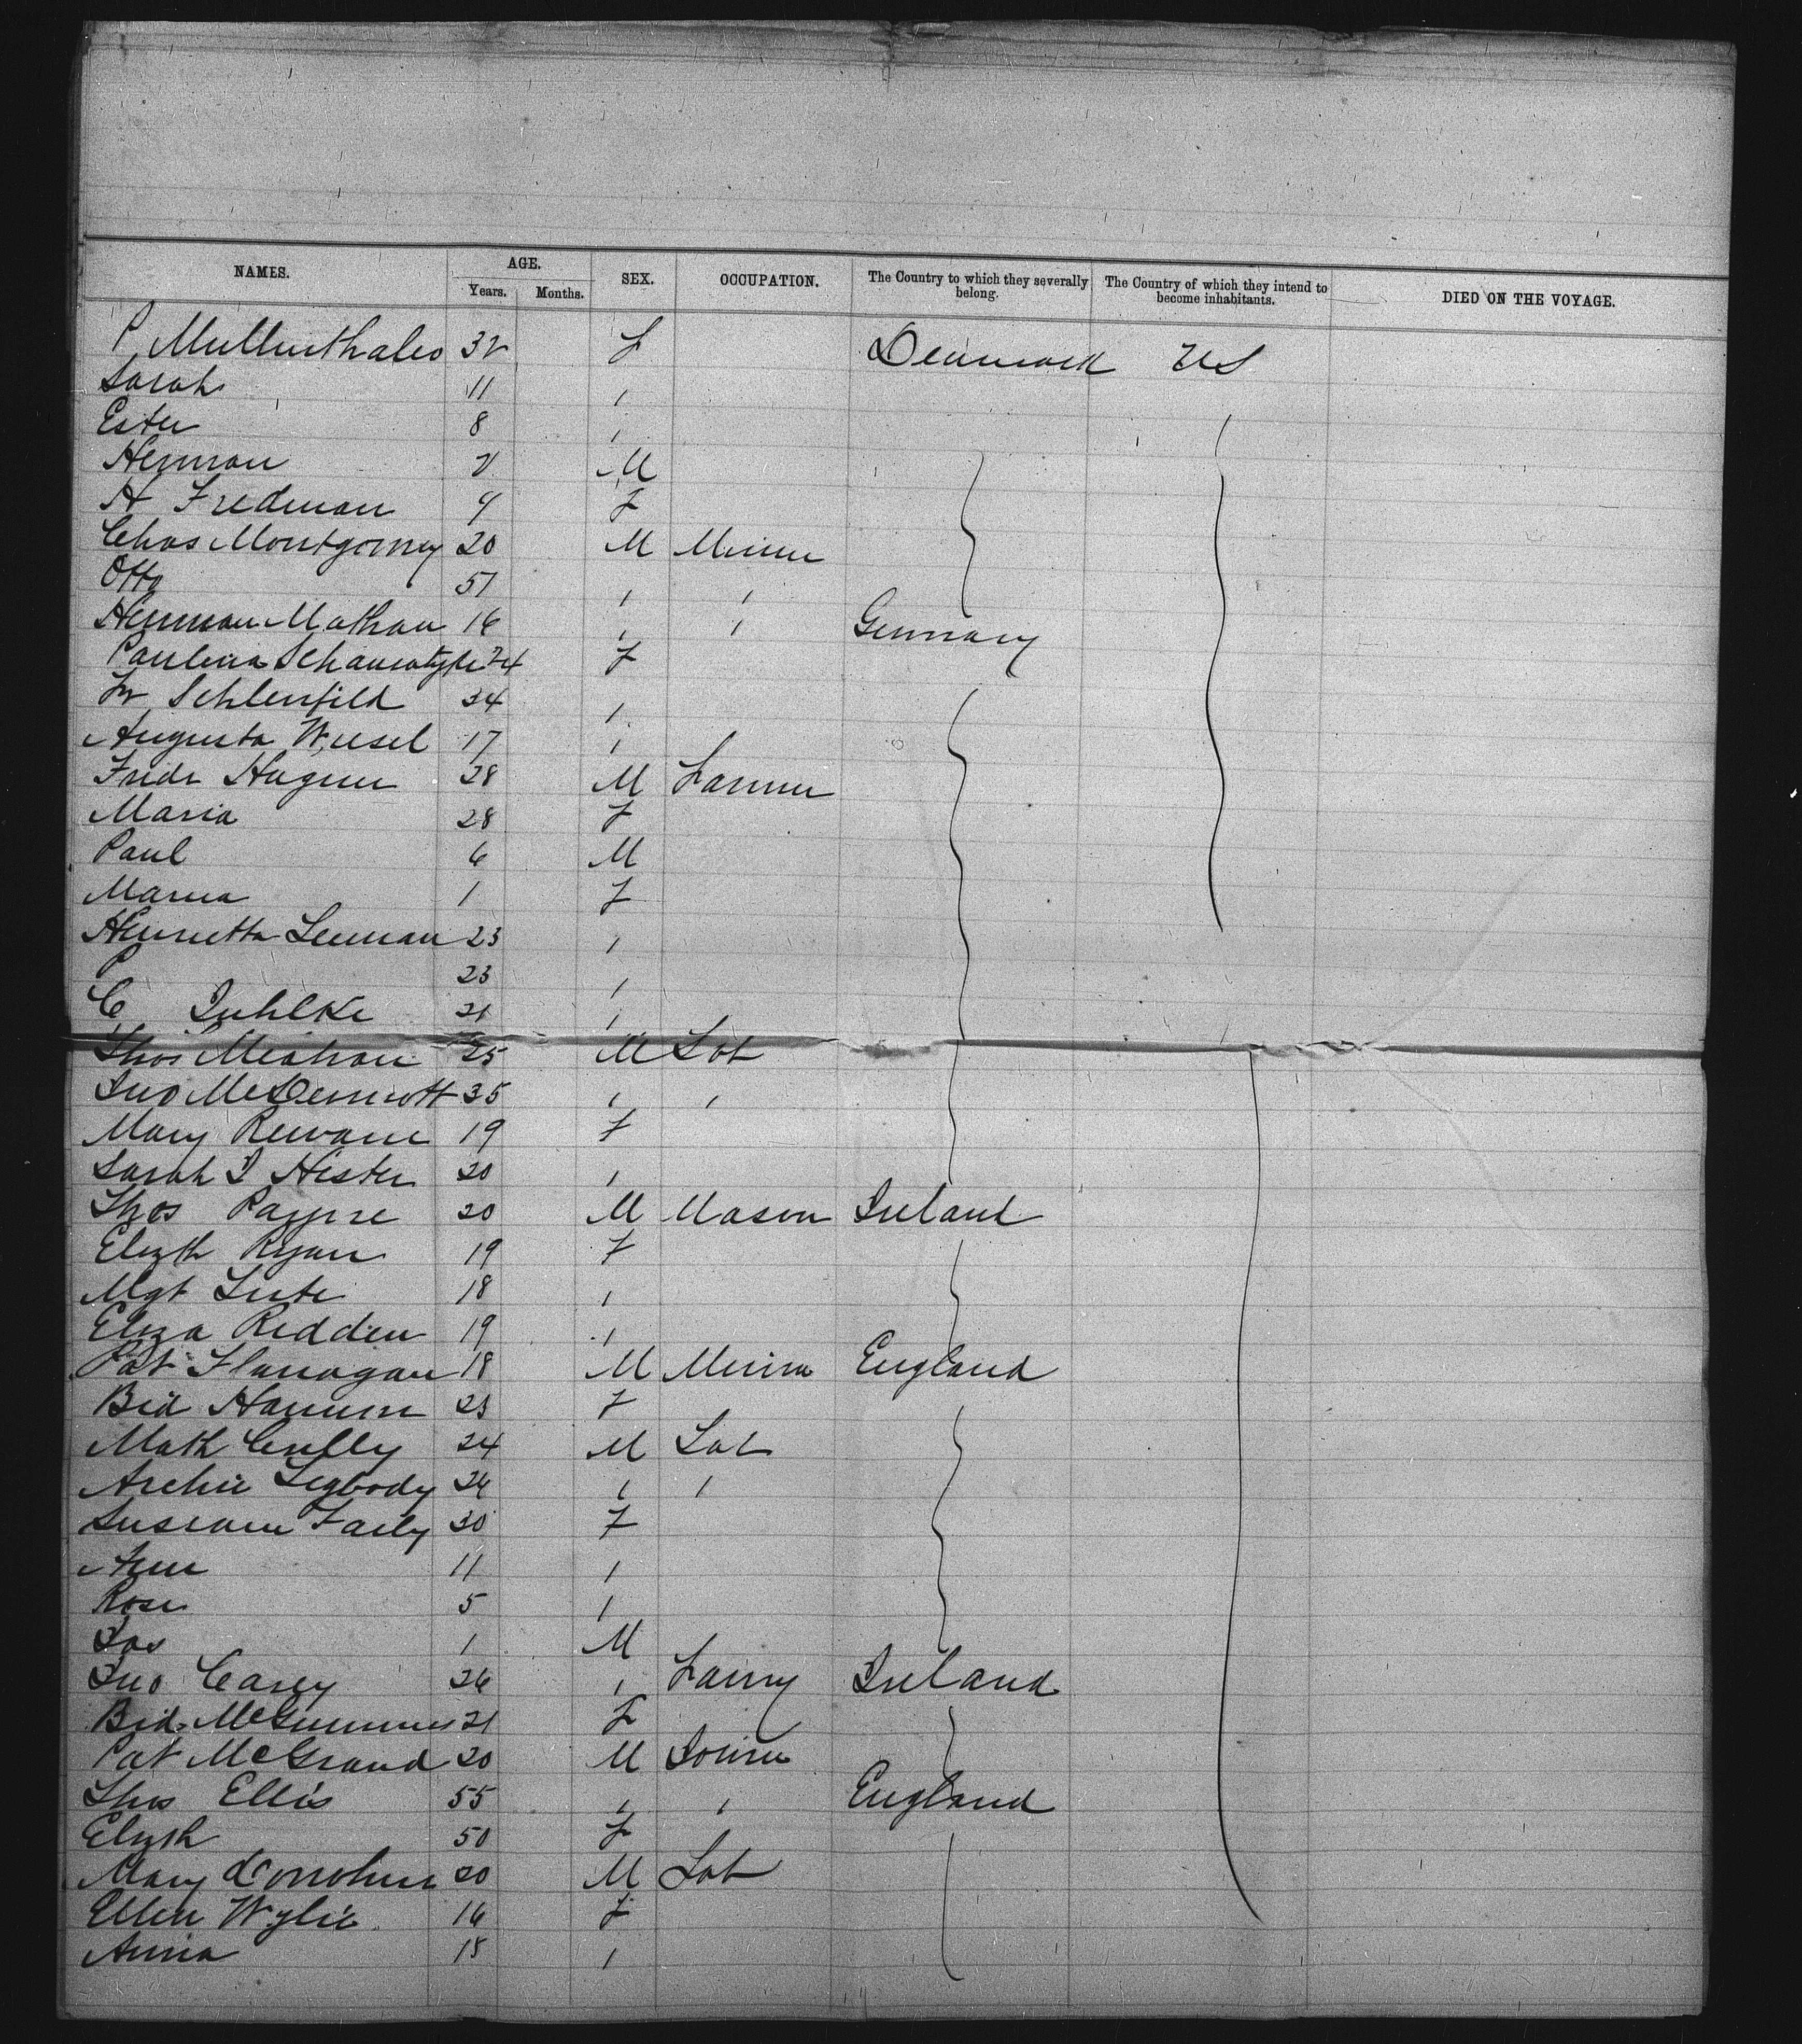 NAMES. AGE. SEX. OCCUPATION. The Country to which they severally belong. The Country of which they intend to become inhabitants. DIED ON THE VOYAGE.
Years. Months.
P 32 F Denmark US
Sarah 11 "
Ester 8 "
Herman 2 M
H Fredman 9 F
Chas Montgomey 20 M Miner
Otto 51 " "
Herman Mathan 16 " " Germany
Paulina 24 F
Schlenfild 24 "
Augusta Wiesel 17 "
Fridr Hagner 28 M Farmer
Maria 28 F
Paul 6 M
Maria 1 F
Henrietta Leuman 23 "
P 23 "
C Juhlke 21 "
Thos Meahan 25 M Lab
Jno McDermott 35 " "
Mary 19 F
Sarah J Hester 20 "
Thos Payne 20 M Mason Ireland
Elizth Ryan 19 F
Mgt 18 "
Eliza Redden 19 "
Pat Flanagan 18 M Miner England
Bid Hannon 23 F
Math Cully 24 M Lab
Archie 24 " "
Susann Farly 30 F
Ann 11 "
Rose 5 "
Jas 1 M
Jno Carey 26 " Ireland
Bid 21 F
Pat McGrand 20 M
Thos Ellis 55 " " England
Elizth 50 F
Mary 20 M Lab
Ellen Wylie 16 F
Anna 18 "